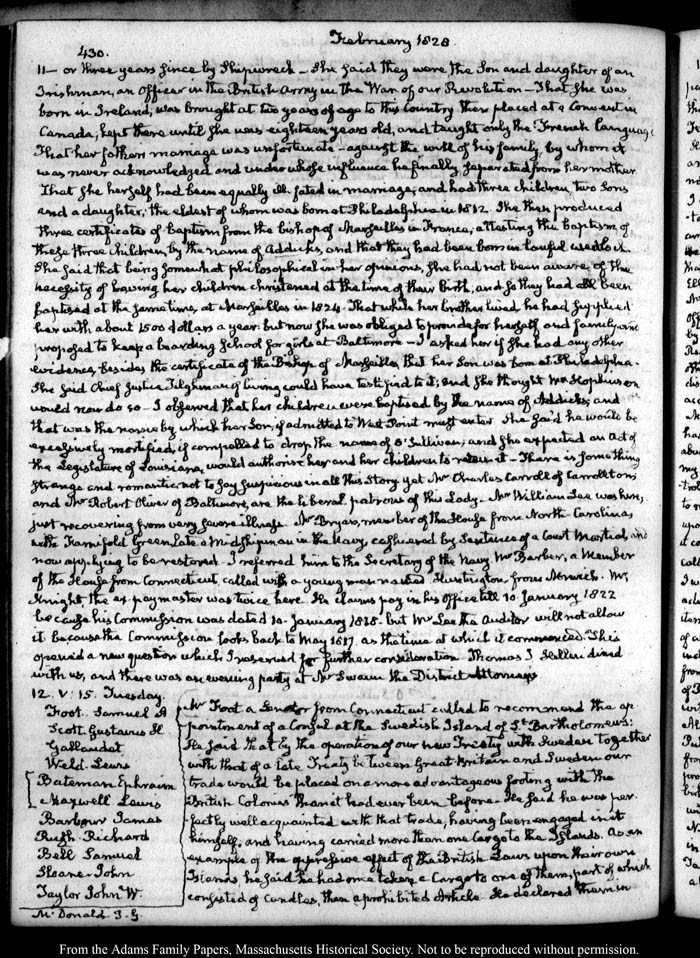 430.
February 1828
11 — or three years since by Shipwreck — She said they were the Son and daughter of an
Irishman, an Officer in the British Army in the War of our Revolution — That She was
born in Ireland, was brought at two years of age to this Country then placed at a Convent in
Canada, kept there until She was eighteen years old, and taught only the French language
That her fathers marriage was unfortunate — against the will of his family, by whom it
was never acknowledged and under whose influence he finally separated from her mother
That She herself had been equally ill-fated in marriage, and had three children, two Sons
and a daughter, the eldest of whom was born at Philadelphia in 1812. She then produced
three certificates of baptism from the bishop of Marseilles in France, attesting the baptism of
these three children, by the name of Addicks, and that they had been born in lawful wedlock.
She said that being somewhat philosophical in her opinions, She had not been aware of the
necessity of having her children christened at the time of their birth, and so they had all been
baptised at the same time, at Marseilles in 1824. That while her brother lived he had supplied
her with about 1500 dollars a year. but now She was obliged to provide for herself and family and
proposed to keep a boarding School for girls at Baltimore — I asked her if She had any other
evidence, besides the certificate of the Bishop of Marseilles, that her Son was born at Philadelphia.
She said Chief Justice Tilghman if living could have testified to it; and She thought Mr Hopkinson
would now do so — I observed that her children were baptised by the name of Addicks, and
that was the name by which her Son, if admitted to West Point must enter. She said he would be
excessively mortified, if compelled to drop the name of O'Sullivan; and She expected an Act of
the Legislature of Louisiana, would authorise her and her children to retain it — There is something
strange and romantic, not to say suspicious in all this Story yet Mr Charles Carroll of Carrollton
and Mr Robert Oliver of Baltimore, are the liberal patrons of this Lady. Mr William Lee was here,
just recovering from very severe illness. Mr Bryan, member of the House from North-Carolina,
with Farnifold Green Late a Midshipman in the Navy, cashiered by Sentence of a Court Martial, and
now applying to be restored. I referred him to the Secretary of the Navy Mr Barber, a Member
of the House from Connecticut, called with a young man named Huntington, from Norwich. Mr
Knight, the ex paymaster was twice here. He claims pay in his Office till 10 January 1822
because his Commission was dated 10. January 1818. but Mr Lee the Auditor will not allow
it because the Commission looks back to May 1817. as the time at which it commenced. This
opened a new question which I reserved for further consideration. Thomas J. Hellen dined
with us, and there was an evening party at Mr Swann the District Attorneys
12. V: 15. Tuesday.
Foot. Samuel A
Scott Gustavus H.
Gallaudet
Weld. Lewis
Bateman Ephraim
Maxwell Lewis
Barbour James
Rush. Richard
Bell Samuel
Sloane John
Taylor John W.
McDonald J. G
Mr Foot a Senator from Connecticut called to recommend the ap
pointment of a Consul at the Swedish Island of St. Bartholomews:
He said that by the operation of our new Treaty with Sweden together
with that of a late Treaty between Great Britain and Sweden our
trade would be placed on a more advantageous footing with the
British Colonies than it had ever been before. He said he was per
fectly well acquainted with that trade, having been engaged in it
himself, and having carried more than one Cargo to the Islands. As an
example of the oppressive effect of the British Laws upon their own
Islands he said he had once taken a Cargo to one of them, part of which
consisted of Candles, then a prohibited Article. He declared them in
From the Adams Family Papers, Massachusetts Historical Society. Not to be reproduced without permission.